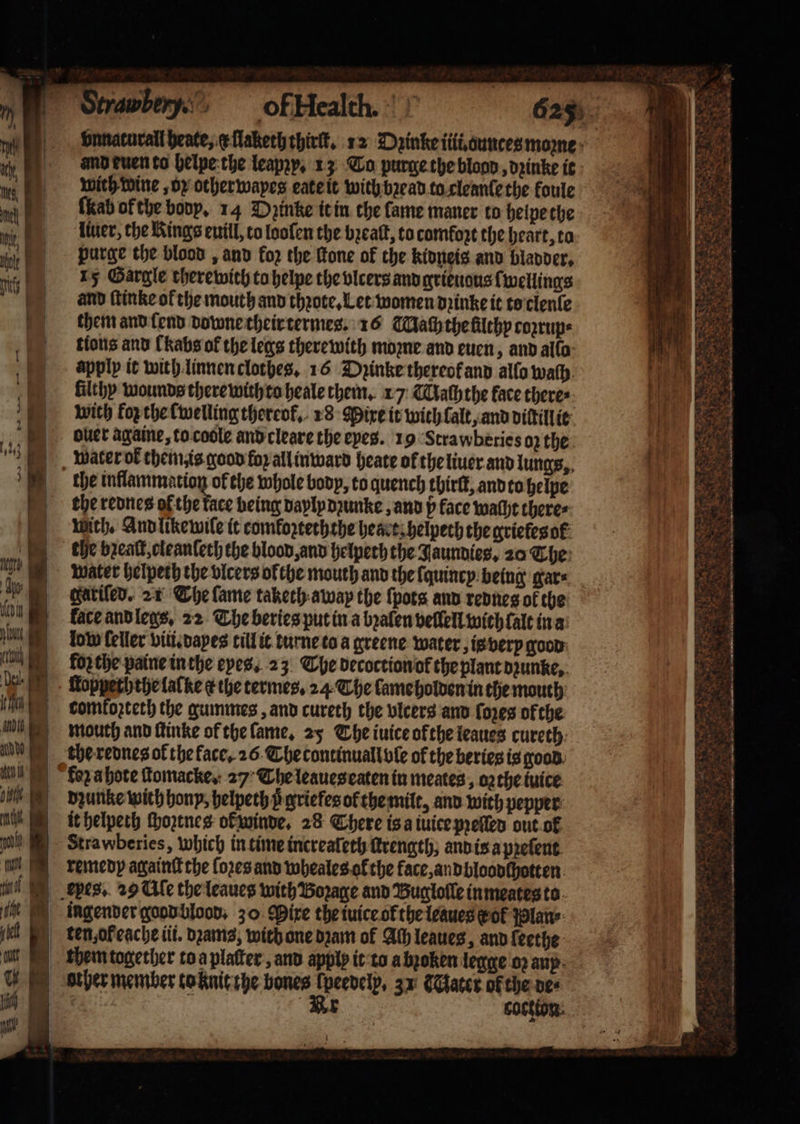 Strawbery. of Health. 625
vnnaturall heate, & slaketh thirst. 12 Drinke iiii. ounces morne
and euen to helpe the leapry. 13 To purge the blood, drinke it
with wine, or otherwayes eate it with bread to cleanse the foule
skab of the body. 14 Drinke it in the same maner to helpe the
liuer, the Kings euill, to loosen the breast, to comfort the heart, to
purge the blood, and for the stone of the kidneis and bladder.
15 Gargle therewith to helpe the vlcers and grieuous swellings
and stinke of the mouth and throte. Let women drinke it to clense
them and send downe their termes. 16 Wash the filthy corrup-
tions and skabs of the legs therewith morne and euen, and also
apply it with linnen clothes. 16 Drinke thereof and also wash
filthy wounds therewith to heale them. 17 Wash the face there-
with for the swelling thereof. 18 Mixe it with salt, and distill it
ouer againe, to coole and cleare the eyes. 19 Strawberies or the
water of them, is good for all inward heate of the liuer and lungs,
the inflammation of the whole body, to quench thirst, and to helpe
the rednes of the face being dayly drunke, and þͤ face washt there-
with. And likewise it comforteth the heart, helpeth the griefes of
the breast, cleanseth the blood, and helpeth the Jaundies. 20 The
water helpeth the vlcers of the mouth and the squincy being gar-
gariled. 21 The same taketh away the spots and rednes of the
face and legs. 22 The beries put in a brasen vessell with salt in a
low seller viii. dayes till it turne to a greene water, is very good
for the paine in the eyes. 23 The decoction of the plant drunke,
stoppeth the laske & the termes. 24 The same holden in the mouth
comforteth the gummes, and cureth the vlcers and sores of the
mouth and stinke of the same. 25 The iuice of the leaues cureth
the rednes of the face. 26 The continuall vse of the beries is good
for a hote stomacke. 27 The leaues eaten in meates, or the iuice
drunke with hony, helpeth þͤ griefes of the milt, and with pepper
it helpeth shortnes of winde. 28 There is a iuice pressed out of
Strawberies, which in time increaseth strength, and is a present
remedy against the sores and wheales of the face, and bloodshotten
eyes. 29 Vse the leaues with Borage and Buglosse in meates to
ingender good blood. 30 Mixe the iuice of the leaues & of Plan-
ten, of eache iii. drams, with one dram of Ash leaues, and seethe
them together to a plaster, and apply it to a broken legge or any
other member to knit the bones speedely. 31 Water of the de-
Rr coction